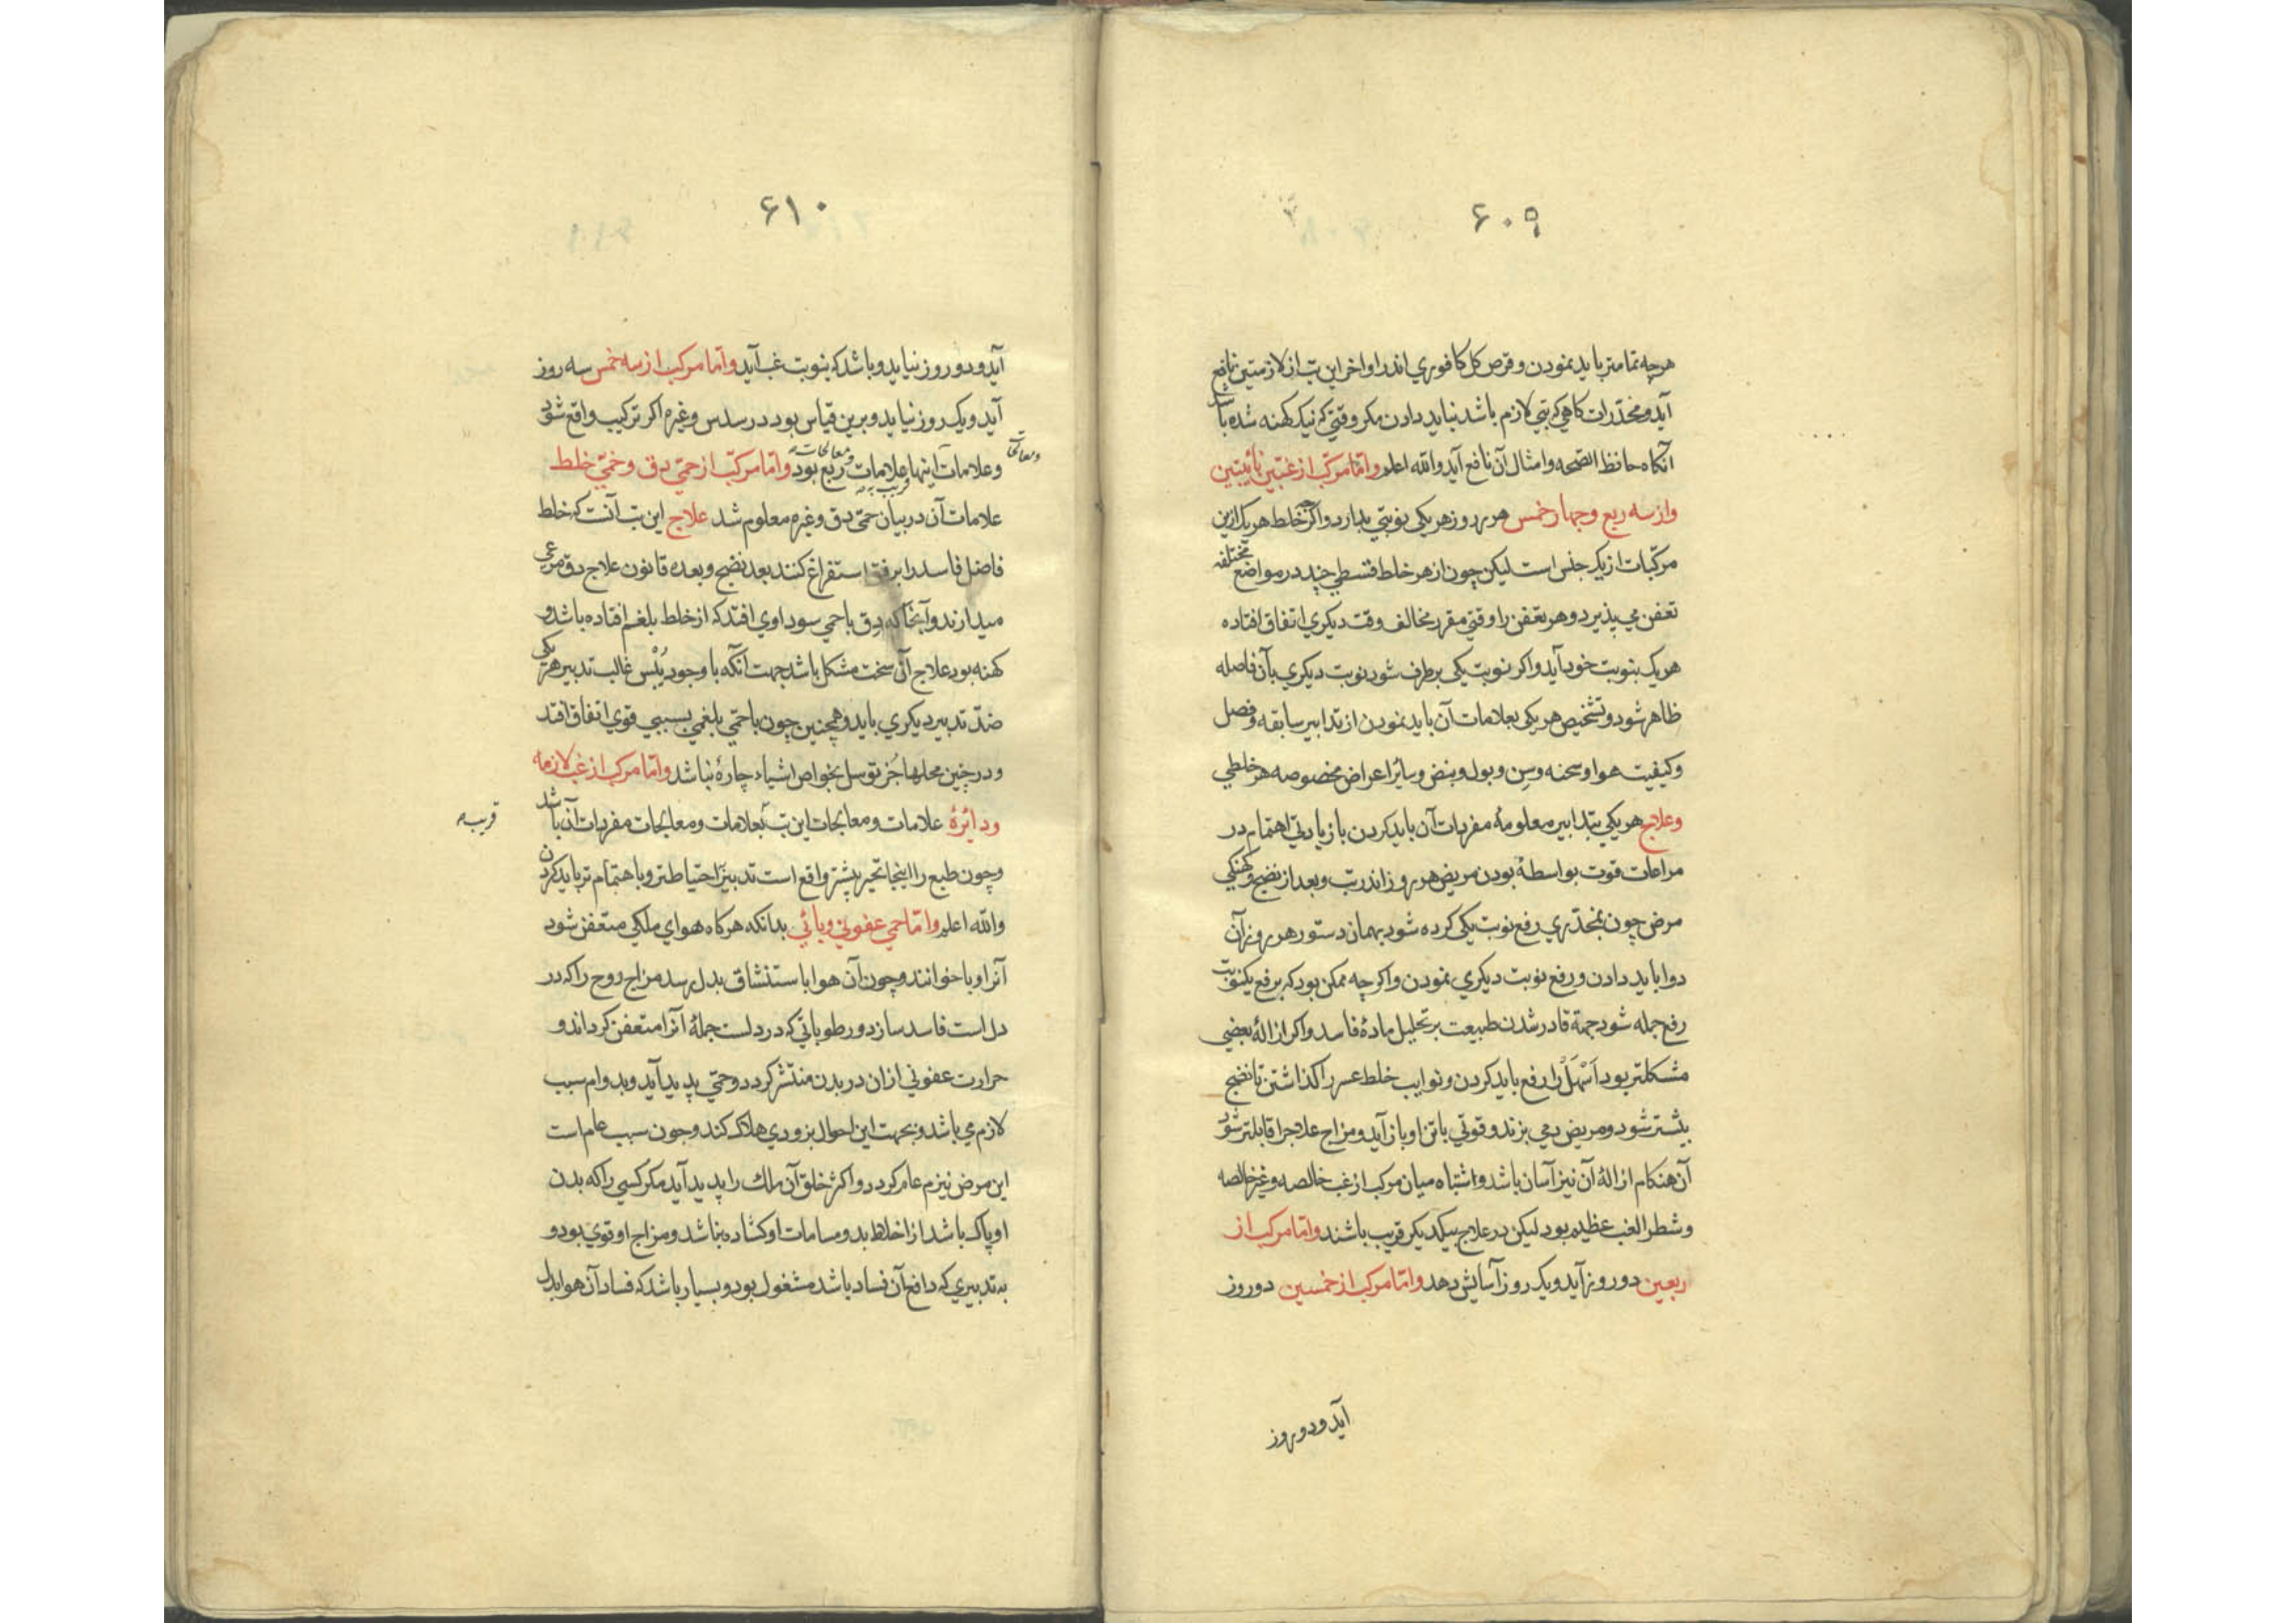 ۶۰۹
هرچه تمامتر باید نمودن و قرص کل کافوری اندر اواخر این تب از لازمتین نافع
آید و مخدرات کاهی که تبی لازم باشد نباید دادن مکر وقتی که نیک کهنه شده باشد
آنکاه حافظ الصحه و امثال آن نافع آید والله اعلم و امّا مرکّب از غبّین نائبتین
و از سه ربع و چهار خمس هر روز هر یکی نوبتی بدارد و اکرچه خلط هر یک ازین
مرکّبات از یک جنس است لیکن چون از هر خلط قسطی چند در مواضع مختلفه
تعفن می پذیرد و هر تعفن را وقتی مقرر مخالف وقت دیکری اتفاق افتاده
هر یک بنوبت خود آید و اکر نوبت یکی برطرف شود نوبت دیکری بآن فاصله
ظاهر شود و تشخیص هر یکی بعلامات آن باید نمودن از تدابیر سابقه و فصل
و کیفیت هوا و سحنه و سن و بول و نبض و سائر اعراض مخصوصه هر خلطی
و علاج هر یکی بتدابیر معلومهٔ مفردات آن باید کردن با زیادتی اهتمام در
مراعات قوت بواسطهٔ بودن مریض هر روز اندر تب و بعد از نضج و کهنکی
مرض چون بمخدّری رفع نوبت یکی کرده شود بهمان دستور هر روز آن
دوا باید دادن و رفع نوبت دیکری نمودن و اکر چه ممکن بود که برفع یکنوبت
رفع جمله شود جهة قادر شدن طبیعت بر تحلیل مادهٔ فاسد و اکر ازالهٔ بعضی
مشکلتر بود اَسْهَل را رفع باید کردن و نوایب خلط عسر را کذاشتن تا نضج
بیشتر شود و مریض دمی بزند و قوتی باتن او باز آید و مزاج علاجرا قابلتر شود
آن هنکام ازالهٔ آن نیز آسان باشد و اشتباه میان مرکب از غب خالصه و غیر خالصه
و شطر الغب عظیم بود لیکن در علاج بیکدیکر قریب باشند و امّا مرکب از
ربعین دو روز آید و یک روز آسایش دهد و امّا مرکب از خمسین دو روز
آید و دو روز
۶۱۰
آید و دو روز نیاید و باشد که بنوبت غب آید و امّا مرکب از سه خمس سه روز
آید و یک روز نیاید و برین قیاس بود در سدس و غیره اکر ترکیب واقع شود
و علامات اینها بعلامات و معالجات ربع قریب بود و امّا مرکّب از حمّی دق و حمّی خلط
و معالجات
علامات آن در بیان حمّی دق و غیره معلوم شد علاج این تب آنست که خلط
فاضل فاسد را برفق استفراغ کنند بعد نضج و بعده قانون علاج دق مرعی
میدارند و آنجا که دق با حمی سوداوی افتد که از خلط بلغم افتاده باشد و
کهنه بود علاج آن سخت مشکل باشد جهت آنکه با وجود یُبْس غالب تدبیر هر یکی
ضدّ تدبیر دیکری باید و همچنین چون با حمّی بلغمی بسببی قوی اتفاق افتد
و در چنین محلها جُز توسل بخواص اشیاء چارهٔ نباشد و امّا مرکب از غب لازمه
و دائرهٔ علامات و معالجات این تب بعلامات و معالجات مفردات آن باشد
قریب
و چون طبع را اینجا تحیر بیشتر واقع است تدبیر احتیاطتر و باهتمام تر باید کردن
والله اعلم و امّا حمی عفونی وبائی بدانکه هر کاه هوای ملکی متعفن شود
آنرا وبا خوانند و چون آن هوا باستنشاق بدل رسد مزاج روح را که در
دل است فاسد سازد و رطوباتی که در دلست جملهٔ آنرا متعفن کرداند و
حرارت عفونی ازان در بدن منتشر کردد و حمّی پدید آید و بدوام سبب
لازم می باشد و بجهت این احوال بزودی هلاک کند و چون سبب عام است
این مرض نیز عام کردد و اکثر خلق آن ملک را پدید آید مکر کسی را که بدن
او پاک باشد از اخلاط بد و مسامات او کشاده نباشد و مزاج او قوی بود و
به تدبیری که دافع آن فساد باشد مشغول بود و بسیار باشد که فساد آن هوا بدل